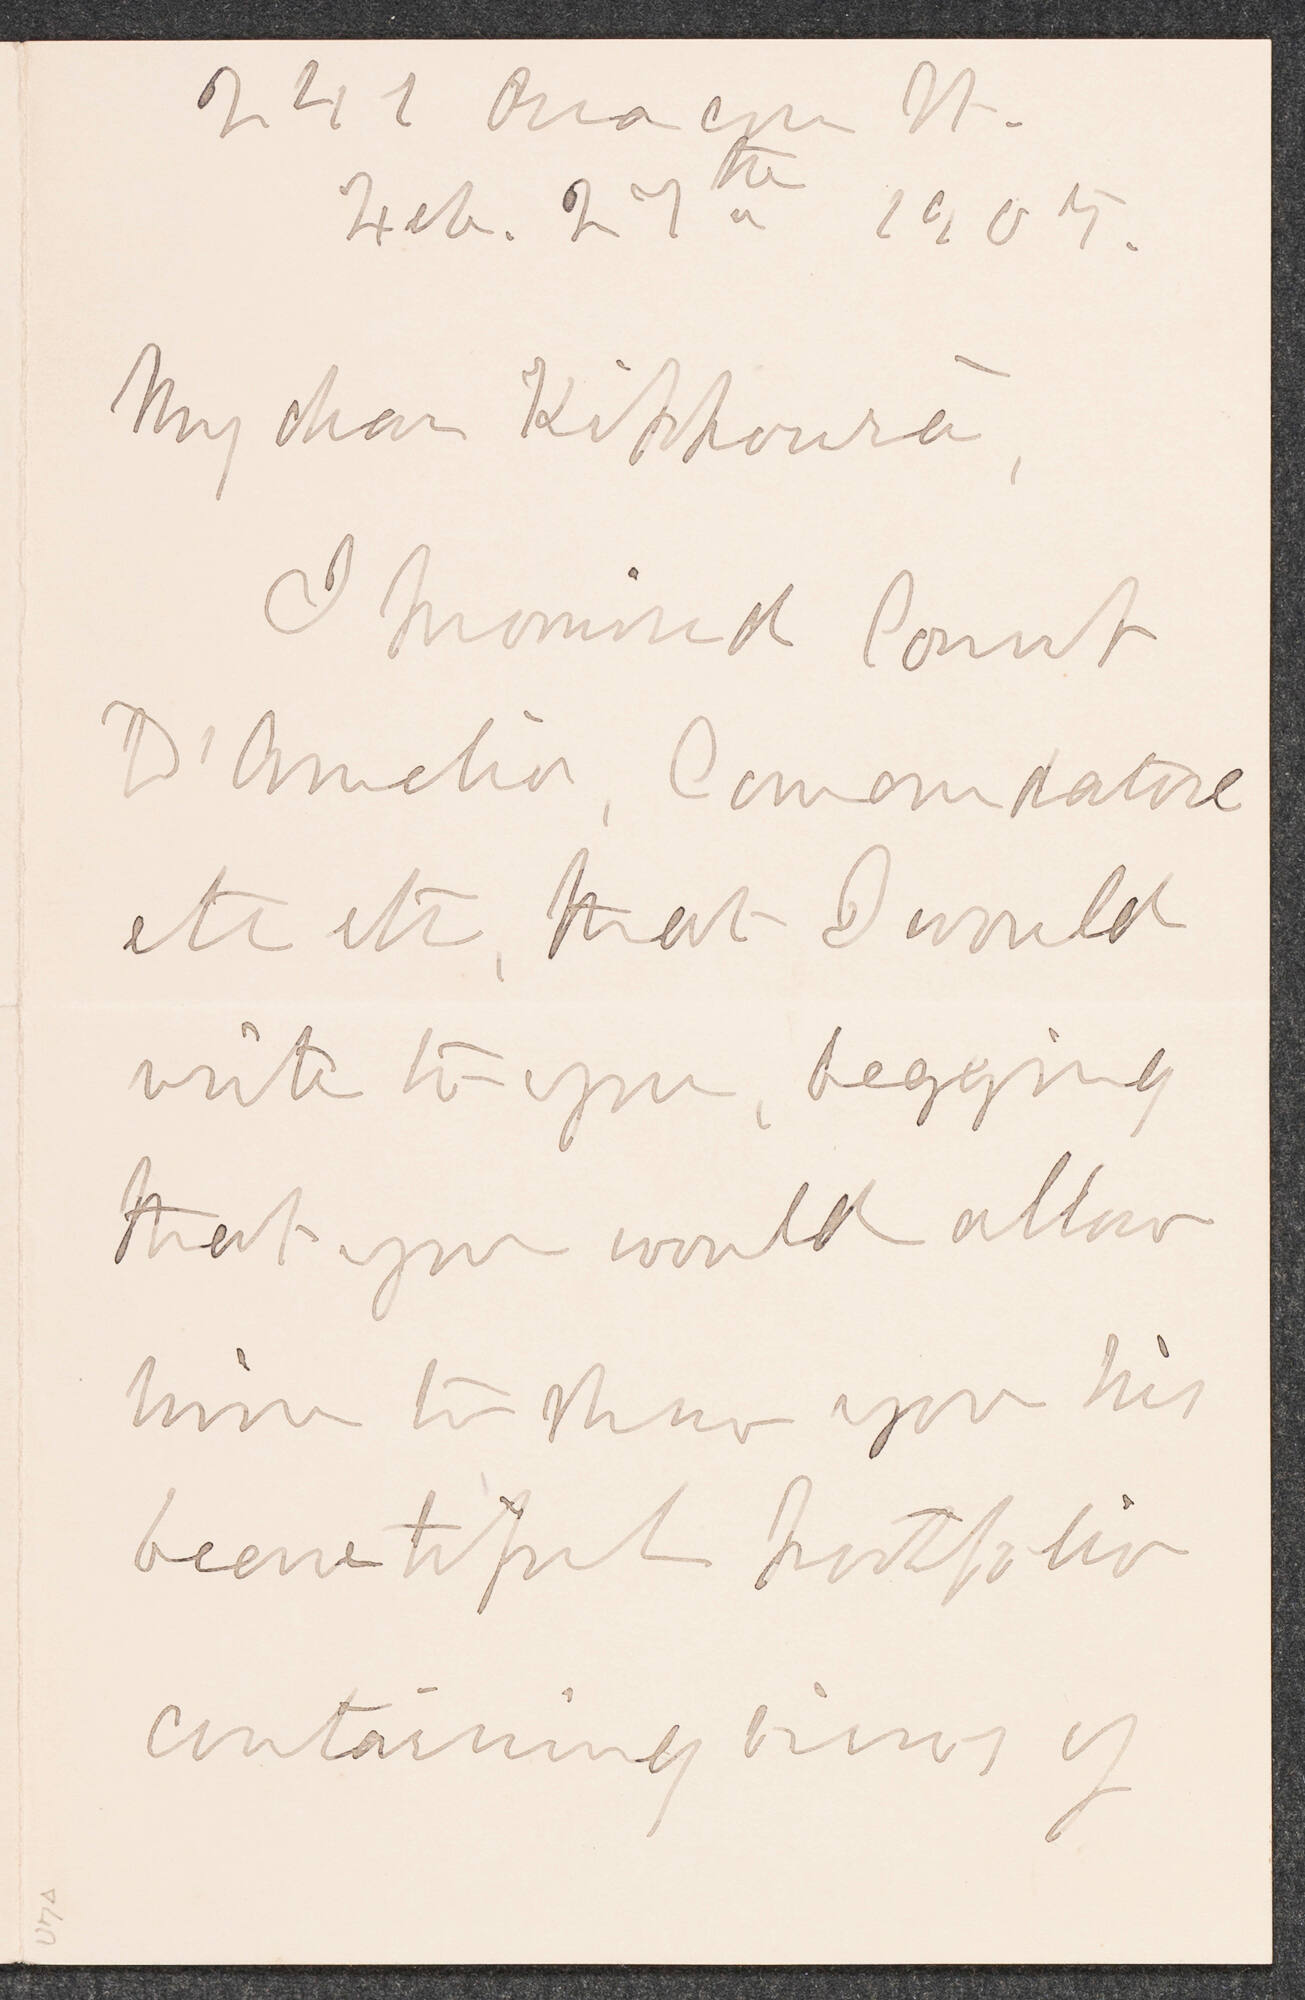 241 Beacon St.
Feb. 27th 1905.
My dear Kitshowsā,
I promised Count
D'Amelio, Comendatore
etc etc, that I would
write to you, begging
that you would allow
him to show you his
beautiful portfolio
containing views of